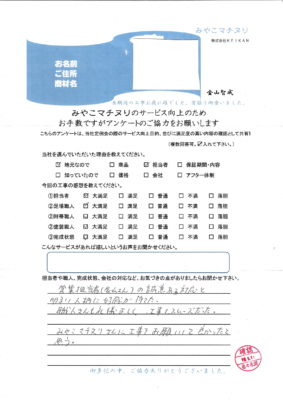 みやこマチヌリ
株式会社KEIKAN
お名前
ご住所
廃材名
金山智成
みやこマチヌリのサービス向上のため
お手数ですがアンケートのご協力をお願いします
こちらのアンケートは、当社定例会の際のサービス向上目的、並びに満足度の高い内容の確認として共有
(複数回答可。☑入れて下さい。)
当社を選んでいただいた理由を教えてください。
☑ 地元なので □ 商品 ☑ 担当者 □ 保証期間・内容
□ 知っていたので □ 価格 □ 会社 □ アフター体制
今回の工事の感想を教えてください。
①担当者 ☑ 大満足 □ 満足 □ 普通 □ 不満 □ 落胆
②足場職人 ☑ 大満足 □ 満足 □ 普通 □ 不満 □ 落胆
③対応 ☑ 大満足 □ 満足 □ 普通 □ 不満 □ 落胆
④塗装職人 ☑ 大満足 □ 満足 □ 普通 □ 不満 □ 落胆
⑤完成状態 ☑ 大満足 □ 満足 □ 普通 □ 不満 □ 落胆
こんなサービスがあれば嬉しいというお声をお聞かせください。
担当者や職人、完成状態、会社の対応など、お気づきの点がありましたらお聞かせ下さい。
営業担当者の誠意ある対応と
明るい人柄に好感が持てた。
職人さんもれ工事もスムーズだった。
みやこマチヌリさんに工事をお願いして良かったと
思う。
御多忙の中、ご協力ありがとうございました。
確認